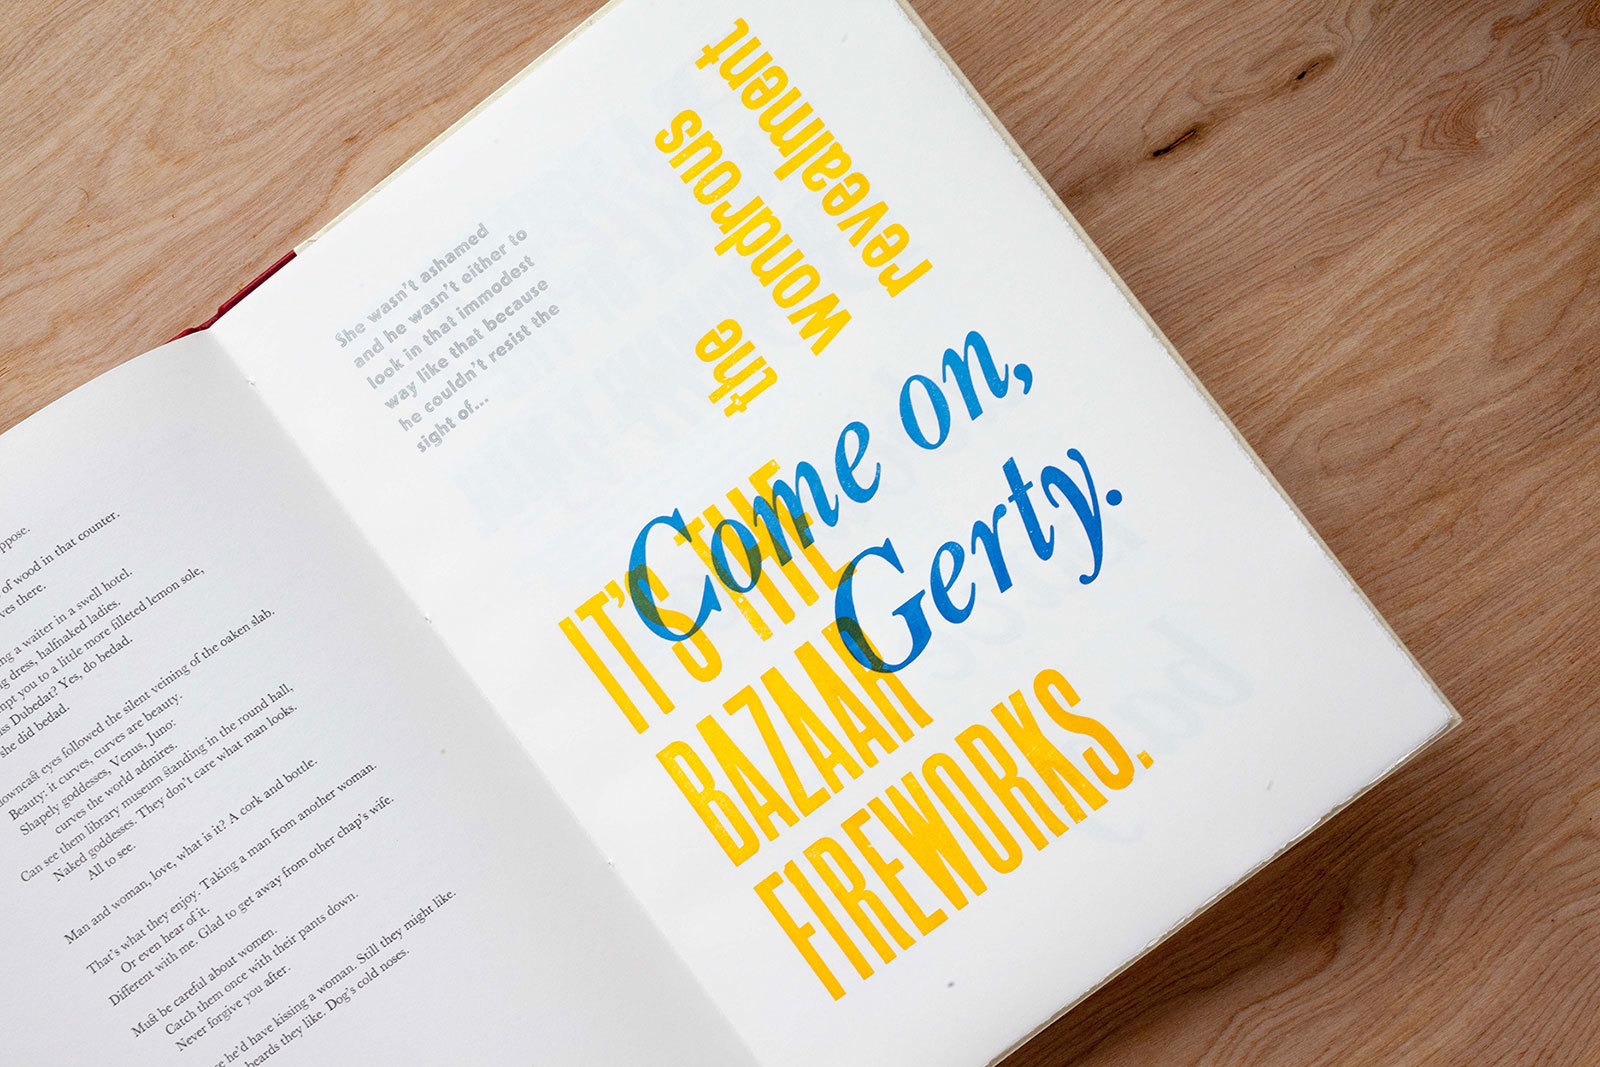 of wood in that counter.
ves there.
g a waiter in a swell hotel.
g dress, halfnaked ladies.
mpt you to a little more filleted lemon sole,
ss Dubedat? Yes, do bedad.
she did bedad.
owncast eyes followed the silent veining of the oaken slab.
Beauty: it curves, curves are beauty.
Shapely goddesses, Venus, Juno:
curves the world admires.
Can see them library museum standing in the round hall,
Naked goddesses. They don't care what man looks.
All to see.
Man and woman, love, what is it? A cork and bottle.
That's what they enjoy. Taking a man from another woman.
Or even hear of it.
Different with me. Glad to get away from other chap's wife.
Must be careful about women.
Catch them once with their pants down.
Never forgive you after.
e he'd have kissing a woman. Still they might like.
beards they like. Dog's cold noses.
She wasn't ashamed
and he wasn't either to
look in that immodest
way like that because
he couldn't resist the
sight of...
the
wondrous
revealment
Come on,
Gerty.
IT'S THE
BAZAAR
FIREWORKS.